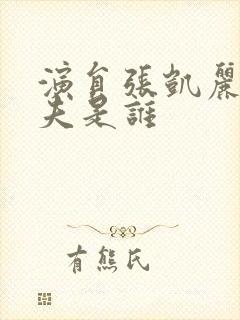 演員張凱麗
夫是誰
有熊氏